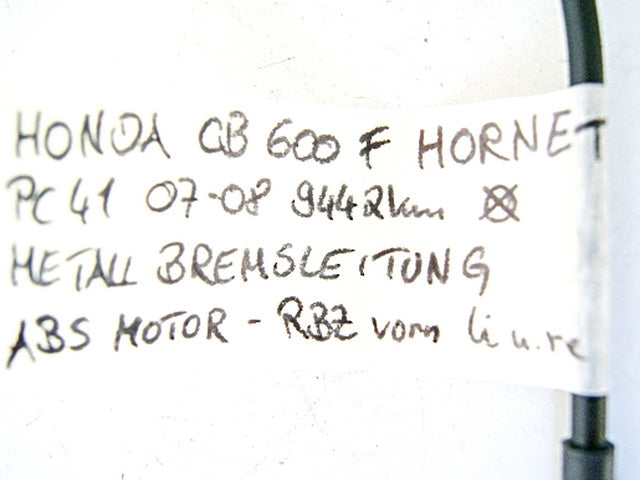 HONDA CB 600 F HORNET
PC41 07-08 9442km ⊗
METALL BREMSLEITUNG
ABS MOTOR - RBZ vorn li u. re